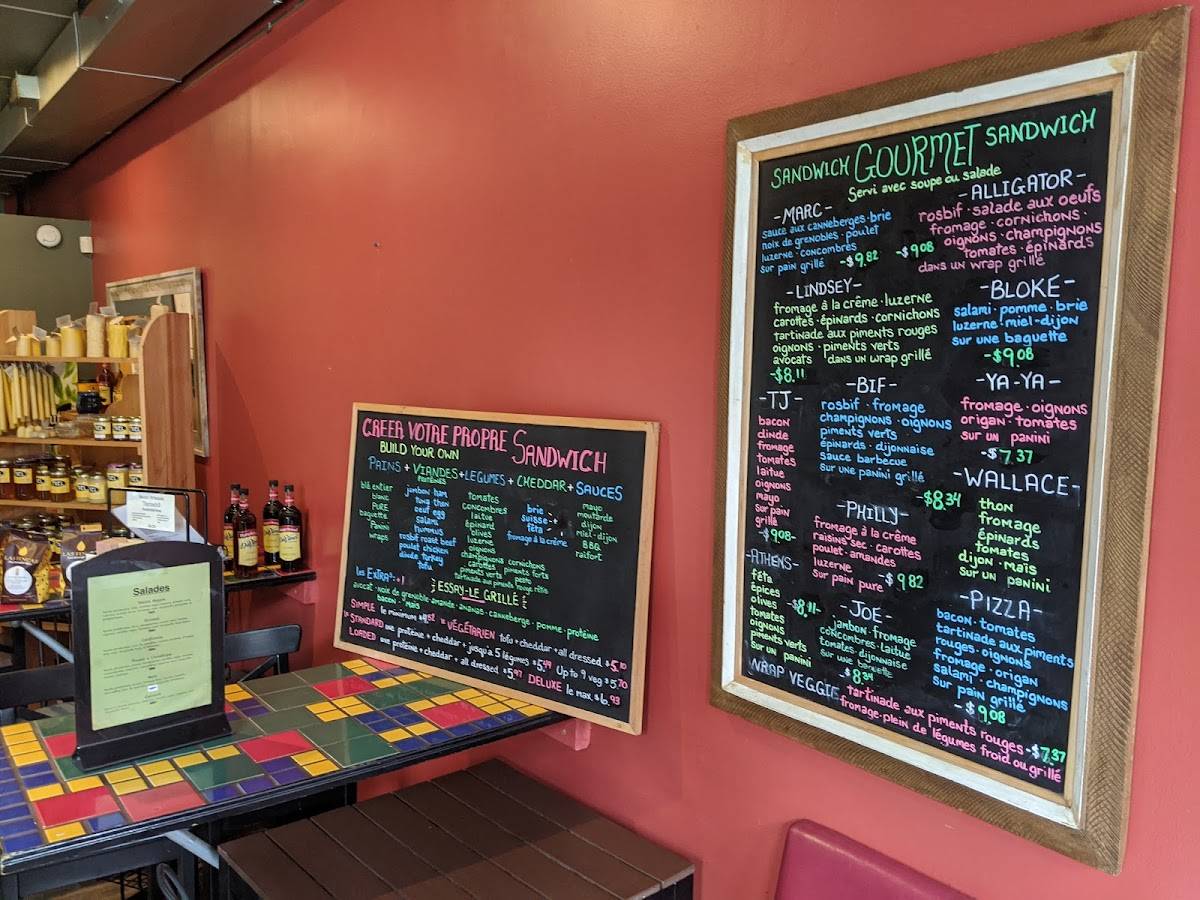 SANDWICH GOURMET SANDWICH
Servi avec soupe ou salade
-MARC-
sauce aux canneberges · brie
noix de grenobles · poulet
luzerne · concombres
sur pain grillé -$9.82
-ALLIGATOR-
rosbif · salade aux oeufs
fromage · cornichons ·
oignons · champignons
tomates · épinards
dans un wrap grillé
-$9.08
-LINDSEY-
fromage à la crême · luzerne
carottes · épinards · cornichons
tartinade aux piments rouges
oignons · piments verts
avocats dans un wrap grillé
-$8.11
-BLOKE-
salami · pomme · brie
luzerne · miel-dijon
sur une baguette
-$9.08
-TJ-
bacon
dinde
fromage
tomates
laitue
oignons
mayo
sur pain
grillé
-$9.08-
-BIF-
rosbif · fromage
champignons · oignons
piments verts
épinards · dijonnaise
sauce barbecue
sur une panini grillé
-$8.34
-YA-YA-
fromage · oignons
origan · tomates
sur un panini
-$7.37
-WALLACE-
thon
fromage
épinards
tomates
dijon · maïs
sur un panini
-PHILLY-
fromage à la crème
raisins sec · carottes
poulet · amandes
luzerne
sur pain pure -$9.82
-ATHENS-
féta
épices
olives
tomates
oignons
piments verts
sur un panini
-$8.11-
-JOE-
jambon · fromage
concombres · laitue
tomates · dijonnaise
sur une baguette
-$8.34
-PIZZA-
bacon · tomates
tartinade aux piments
rouges · oignons
fromage · origan
salami · champignons
sur pain grillé
-$9.08
WRAP VEGGIE - tartinade aux piments rouges -$7.37
fromage · plein de légumes froid ou grillé
CREER VOTRE PROPRE SANDWICH
BUILD YOUR OWN
PAINS + VIANDES + LEGUMES + CHEDDAR + SAUCES
PROTÉINES
blé entier
blanc
PURE
baguette
Panini
wraps
jambon · ham
tuna thon
oeuf egg
salami
hummus
rosbif roast beef
poulet chicken
dinde turkey
tofu
tomates
concombres
laitue
épinard
olives
luzerne
oignons
champignons cornichons
carottes piments forts
piments verts pesto
tartinade aux piments rouge rôtis
brie
suisse
féta
fromage à la crème
mayo
moutarde
dijon
miel-dijon
B.B.Q.
raifort
les EXTRAS: +1
ESSAY-LE GRILLÉ
avocat · noix de grenoble · amande · ananas · canneberge · pomme · protéine
bacon · maïs
SIMPLE le minimum
VÉGÉTARIEN tofu + cheddar + all dressed $5.10
le STANDARD une protéine + cheddar + jusqu'a 5 légumes $5.49 Up to 9 veg $5.70
LOADED une protéine + cheddar + all dressed $5.97 DELUXE le max $6.93
Salades